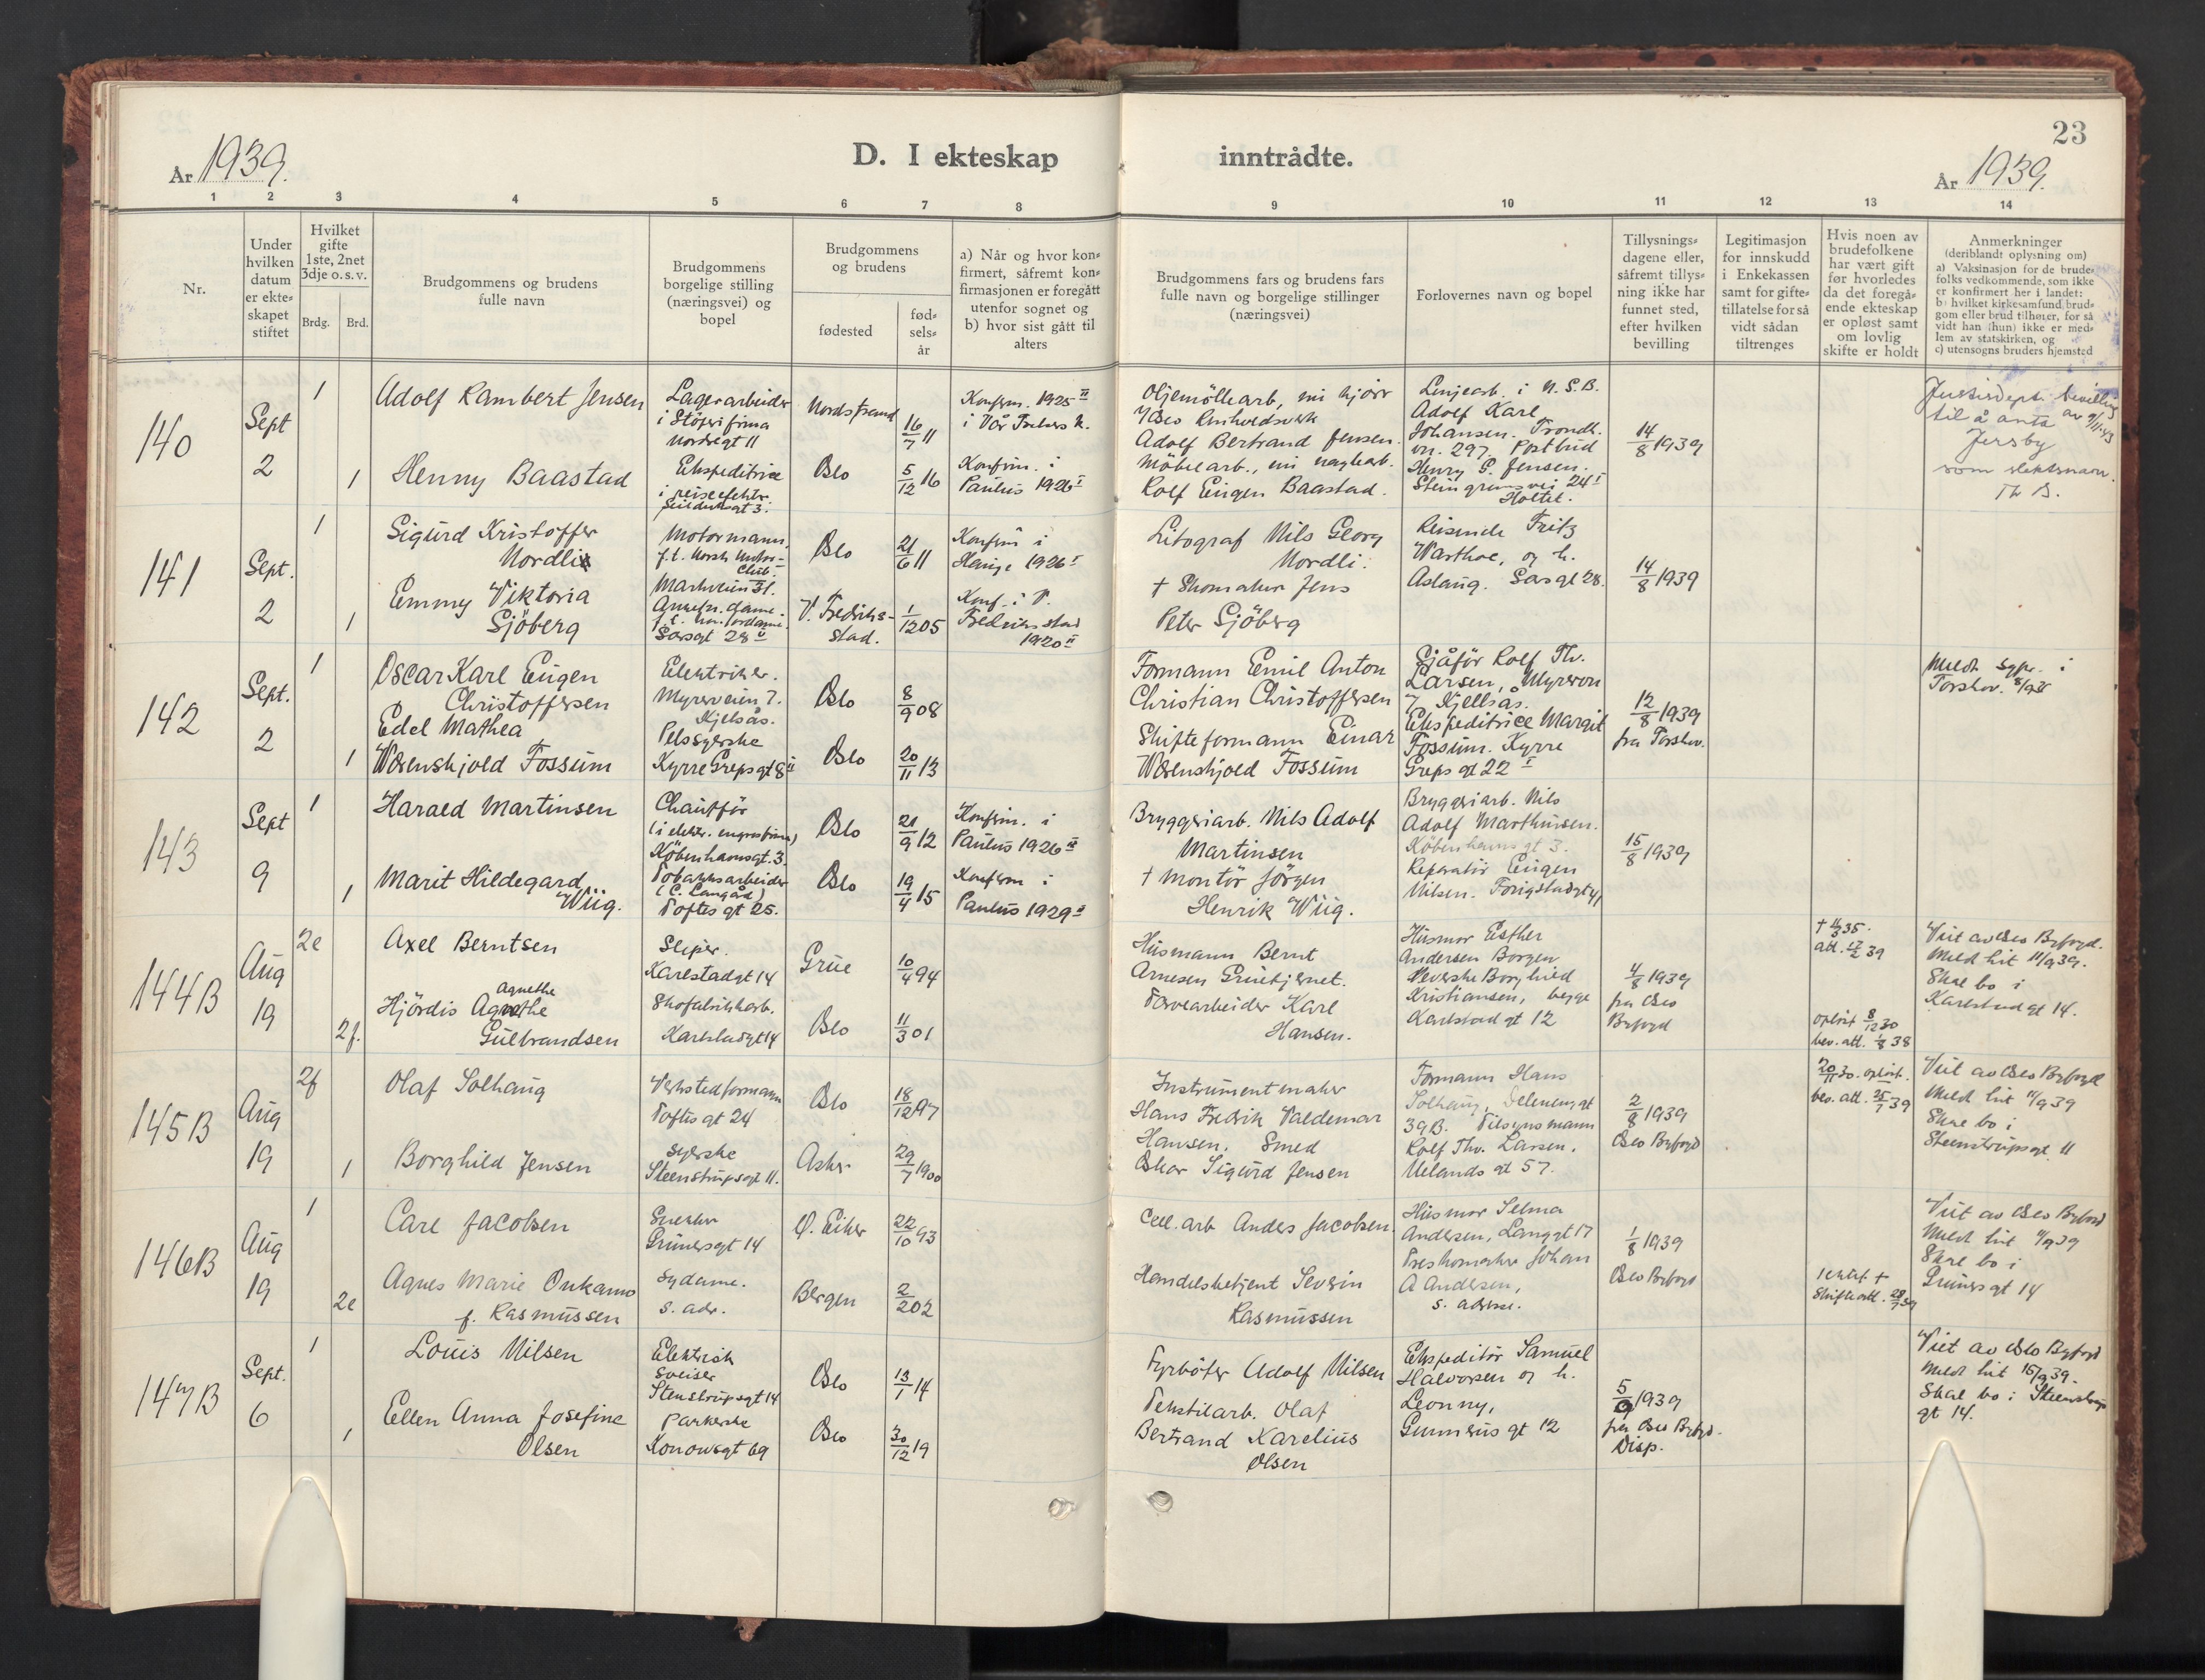 23
År 1939.
D. I ekteskap inntrådte.
År 1939.
1 2 3 4 5 6 7 8 9 10 11 12 13 14
Nr.
Under hvilken datum er ekteskapet stiftet
Hvilket gifte 1ste, 2net 3dje o. s. v.
Brdg. Brd.
Brudgommens og brudens fulle navn
Brudgommens borgelige stilling (næringsvei) og bopel
Brudgommens og brudens
fødested
fødselsår
a) Når og hvor konfirmert, såfremt konfirmasjonen er foregått utenfor sognet og b) hvor sist gått til alters
Brudgommens fars og brudens fars fulle navn og borgelige stillinger (næringsvei)
Forlovernes navn og bopel
Tillysningsdagene eller, såfremt tillysning ikke har funnet sted, efter hvilken bevilling
Legitimasjon for innskudd i Enkekassen samt for giftetillatelse for så vidt sådan tiltrenges
Hvis noen av brudefolkene har vært gift før hvorledes da det foregående ekteskap er opløst samt om lovlig skifte er holdt
Anmerkninger (deriblandt oplysning om) a) Vaksinasjon for de brudefolks vedkommende, som ikke er konfirmert her i landet; b) hvilket kirkesamfund brudgom eller brud tilhører, for så vidt han (hun) ikke er medlem av statskirken, og c) utensogns bruders hjemsted
140
Sept 2
1
Adolf Rambert Jensen
Lagerarbeider
i Støperifirma
Nordregt 11
Nordstrand
16/7 11
Konfirm. 1925 II
i Vår Frelsers k.
Oljemöllearb,
Adolf Bertrand Jensen.
Linjearb. i N.S.B.
Adolf Karl
Johansen. Trondh.
vn. 297. Postbud
Henry P. Jensen.
Steingrimsvei 24 I
Holtet.
14/8 1939
Justisdepts bevilling
til å anta
Jersby
som slektsnavn.
1
Henny Baastad
Ekspeditrice
Oslo
5/12 16
Konfirm. i
Paulus 1926 I
Møbelarb.,
Rolf Eugen Baastad.
141
Sept. 2
1
Sigurd Kristoffer
Nordli
Motormann
f.t. Norsk Motor-
Club.
Markveien 31.
Oslo
21/6 11
Konfirm i
Hauge 1926 I
Litograf Nils Georg
Nordli.
Reisende Fritz
Warthoe, og h.
Aslaug. Sarsgt 28.
14/8 1939
1
Emmy Viktoria
Sjöberg
Sarsgt 28 II
V. Fredrik-
stad.
1/12 05
Konf. i V.
Fredrikstad
1920 II
† Skomaker Jens
Peter Sjöberg
142
Sept. 2
1
Oscar Karl Eugen
Christoffersen
Elektriker.
Myrerveien 7.
Kjelsås.
Oslo
8/9 08
Formann Emil Anton
Christian Christoffersen
Sjåför Rolf Th.
Larsen, Myrervn
7 Kjellsås.
Ekspeditrice Margit
Fossum. Kyrre
Greps gt 22 I
12/8 1939
fra Torshov.
Meldt sgpr. i
Torshov.
1
Edel Mathea
Værenskjold Fossum
Pelssyerske
Kyrre Greps gt 8 II
Oslo
20/11 13
Skifteformann Einar
Værenskjold Fossum
143
Sept 9
1
Harald Martinsen
Chauffør
(i elektr. engrosfirma)
Københavnsgt. 3.
Oslo
21/9 12
Konfirm. i
Paulus 1926 II
Bryggeriarb. Nils Adolf
Martinsen
Bryggeriarb. Nils
Adolf Marthinsen.
Københavnsgt 3.
Reparatör Eugen
Nilsen.
15/8 1939
1
Marit Hildegard
Wiig.
Tobakksarbeider
(C. Langård)
Toftes gt 25.
Oslo
19/4 15
Konfirm i
Paulus 1929 II
† Montör Jörgen
Henrik Wiig.
144B
Aug 19
2e
Axel Berntsen
Sliper.
Karlstadgt 14
Grue
10/4 94
Husmann Bernt
Arnesen Gruetjernet.
Husmor Esther
Andersen Borgen
Veverske Borghild
Kristiansen, begge
Karlstad gt 12
4/8 1939
fra Oslo
Byfogd
Viet av Oslo Byfogd.
Meldt hit 11/9 39.
Skal bo i
Karlstad gt 14.
2f.
Agnethe
Hjördis Agnethe
Gulbrandsen
Skofabrikkarb.
Karlstadgt 14
Oslo
11/3 01
Tørvearbeider Karl
Hansen.
opløst 8/12 30
bev. att. 1/8 38
145B
Aug 19
2f
Olaf Solhaug
Verkstedformann
Toftes gt 24
Oslo
18/12 97
Instrumentmaker
Hans Fredrik Valdemar
Hansen.
Formann Hans
Solhaug, Helenengt
39B. Tilsynsmann
Rolf Thv. Larsen.
Uelands gt 57.
2/8 1939
Oslo Byfogd
20/11 30. opløst.
bev. att. 25/7 39
Viet av Oslo Byfogd
Meldt hit 11/9 39
Skal bo i
Steenstrupsgt 11
1
Borghild Jensen
Syerske
Steenstrupsgt 11.
Asker
29/7 1900
Smed
Oskar Sigurd Jensen
146B
Aug 19
1
Carl Jacobsen
Snekker
Grünersgt 14
Ø. Eiker
22/10 93
Cell. arb Anders Jacobsen
Husmor Selma
Andersen, Langgt 17
Treskomaker Johan
A Andersen,
s. adresse.
1/8 1939
Oslo Byfogd
Viet av Oslo Byfogd
Meldt hit 11/9 39
Skal bo i
Grüners gt 14
2e
Agnes Marie Onkamo
f. Rasmussen
Sydame.
s. adr.
Bergen
2/2 02
Handelsbetjent Severin
Rasmussen
1 ektef. †
Skifteatt. 28/7 39
147B
Sept. 6
1
Louis Nilsen
Elektrisk
Sveiser
Stenstrupsgt 14
Oslo
13/1 14
Fyrbøter Adolf Nilsen
Ekspeditör Samuel
Halvorsen og h.
Leonny,
Gunnerus gt 12
5/9 1939
fra Oslo Byfgd.
Disp.
Viet av Oslo Byfogd
Meldt hit 15/9 39.
Skal bo i Steenstrups
gt 14.
1
Ellen Anna Josefine
Olsen
Pakkerske
Konowsgt 69
Oslo
30/12 19
Tekstilarb. Olaf
Bertrand Karelius
Olsen